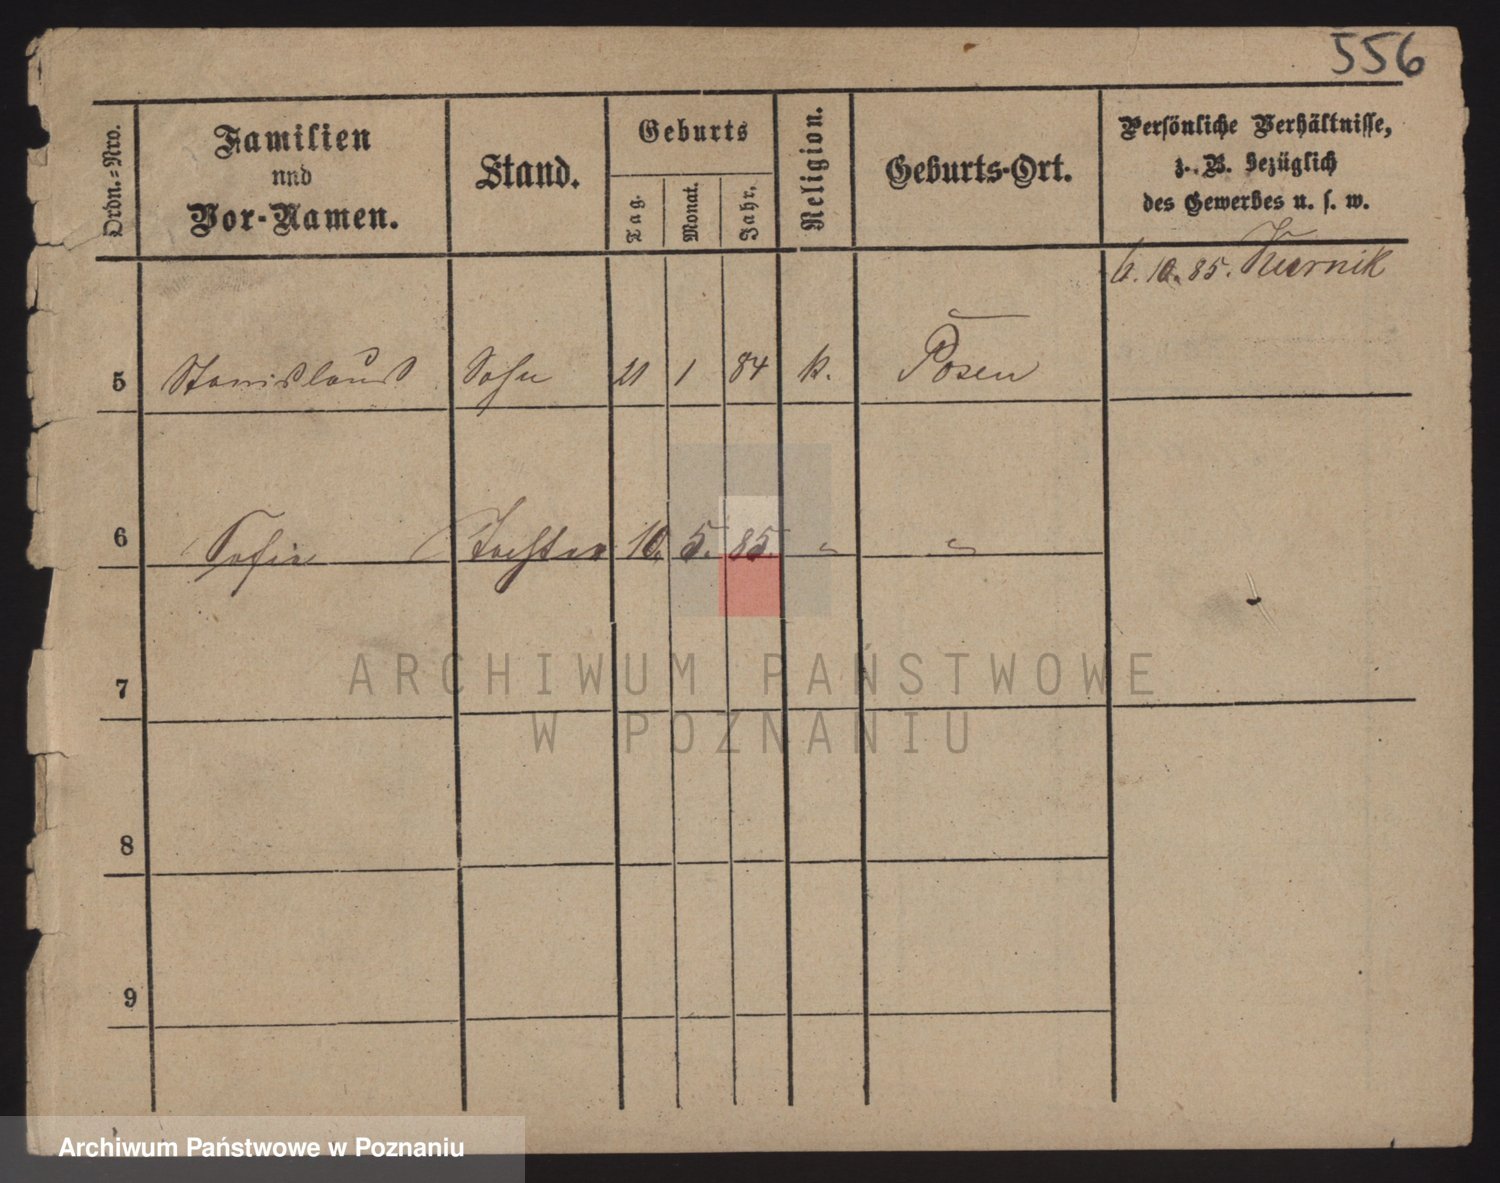 556
Ordn.=Nro.
Familien
und
Vor-Namen.
Stand.
Geburts
Tag.
Monat.
Jahr.
Religion.
Geburts-Ort.
Persönliche Verhältnisse,
z. B. bezüglich
des Gewerbes u. s. w.
10. 85. Kurnik
5 Stanislaus Sohn 21 1 84 k. Posen
6 Sofie Tochter 10. 5. 85. " "
7
8
9
ARCHIWUM PAŃSTWOWE
W POZNANIU
Archiwum Państwowe w Poznaniu